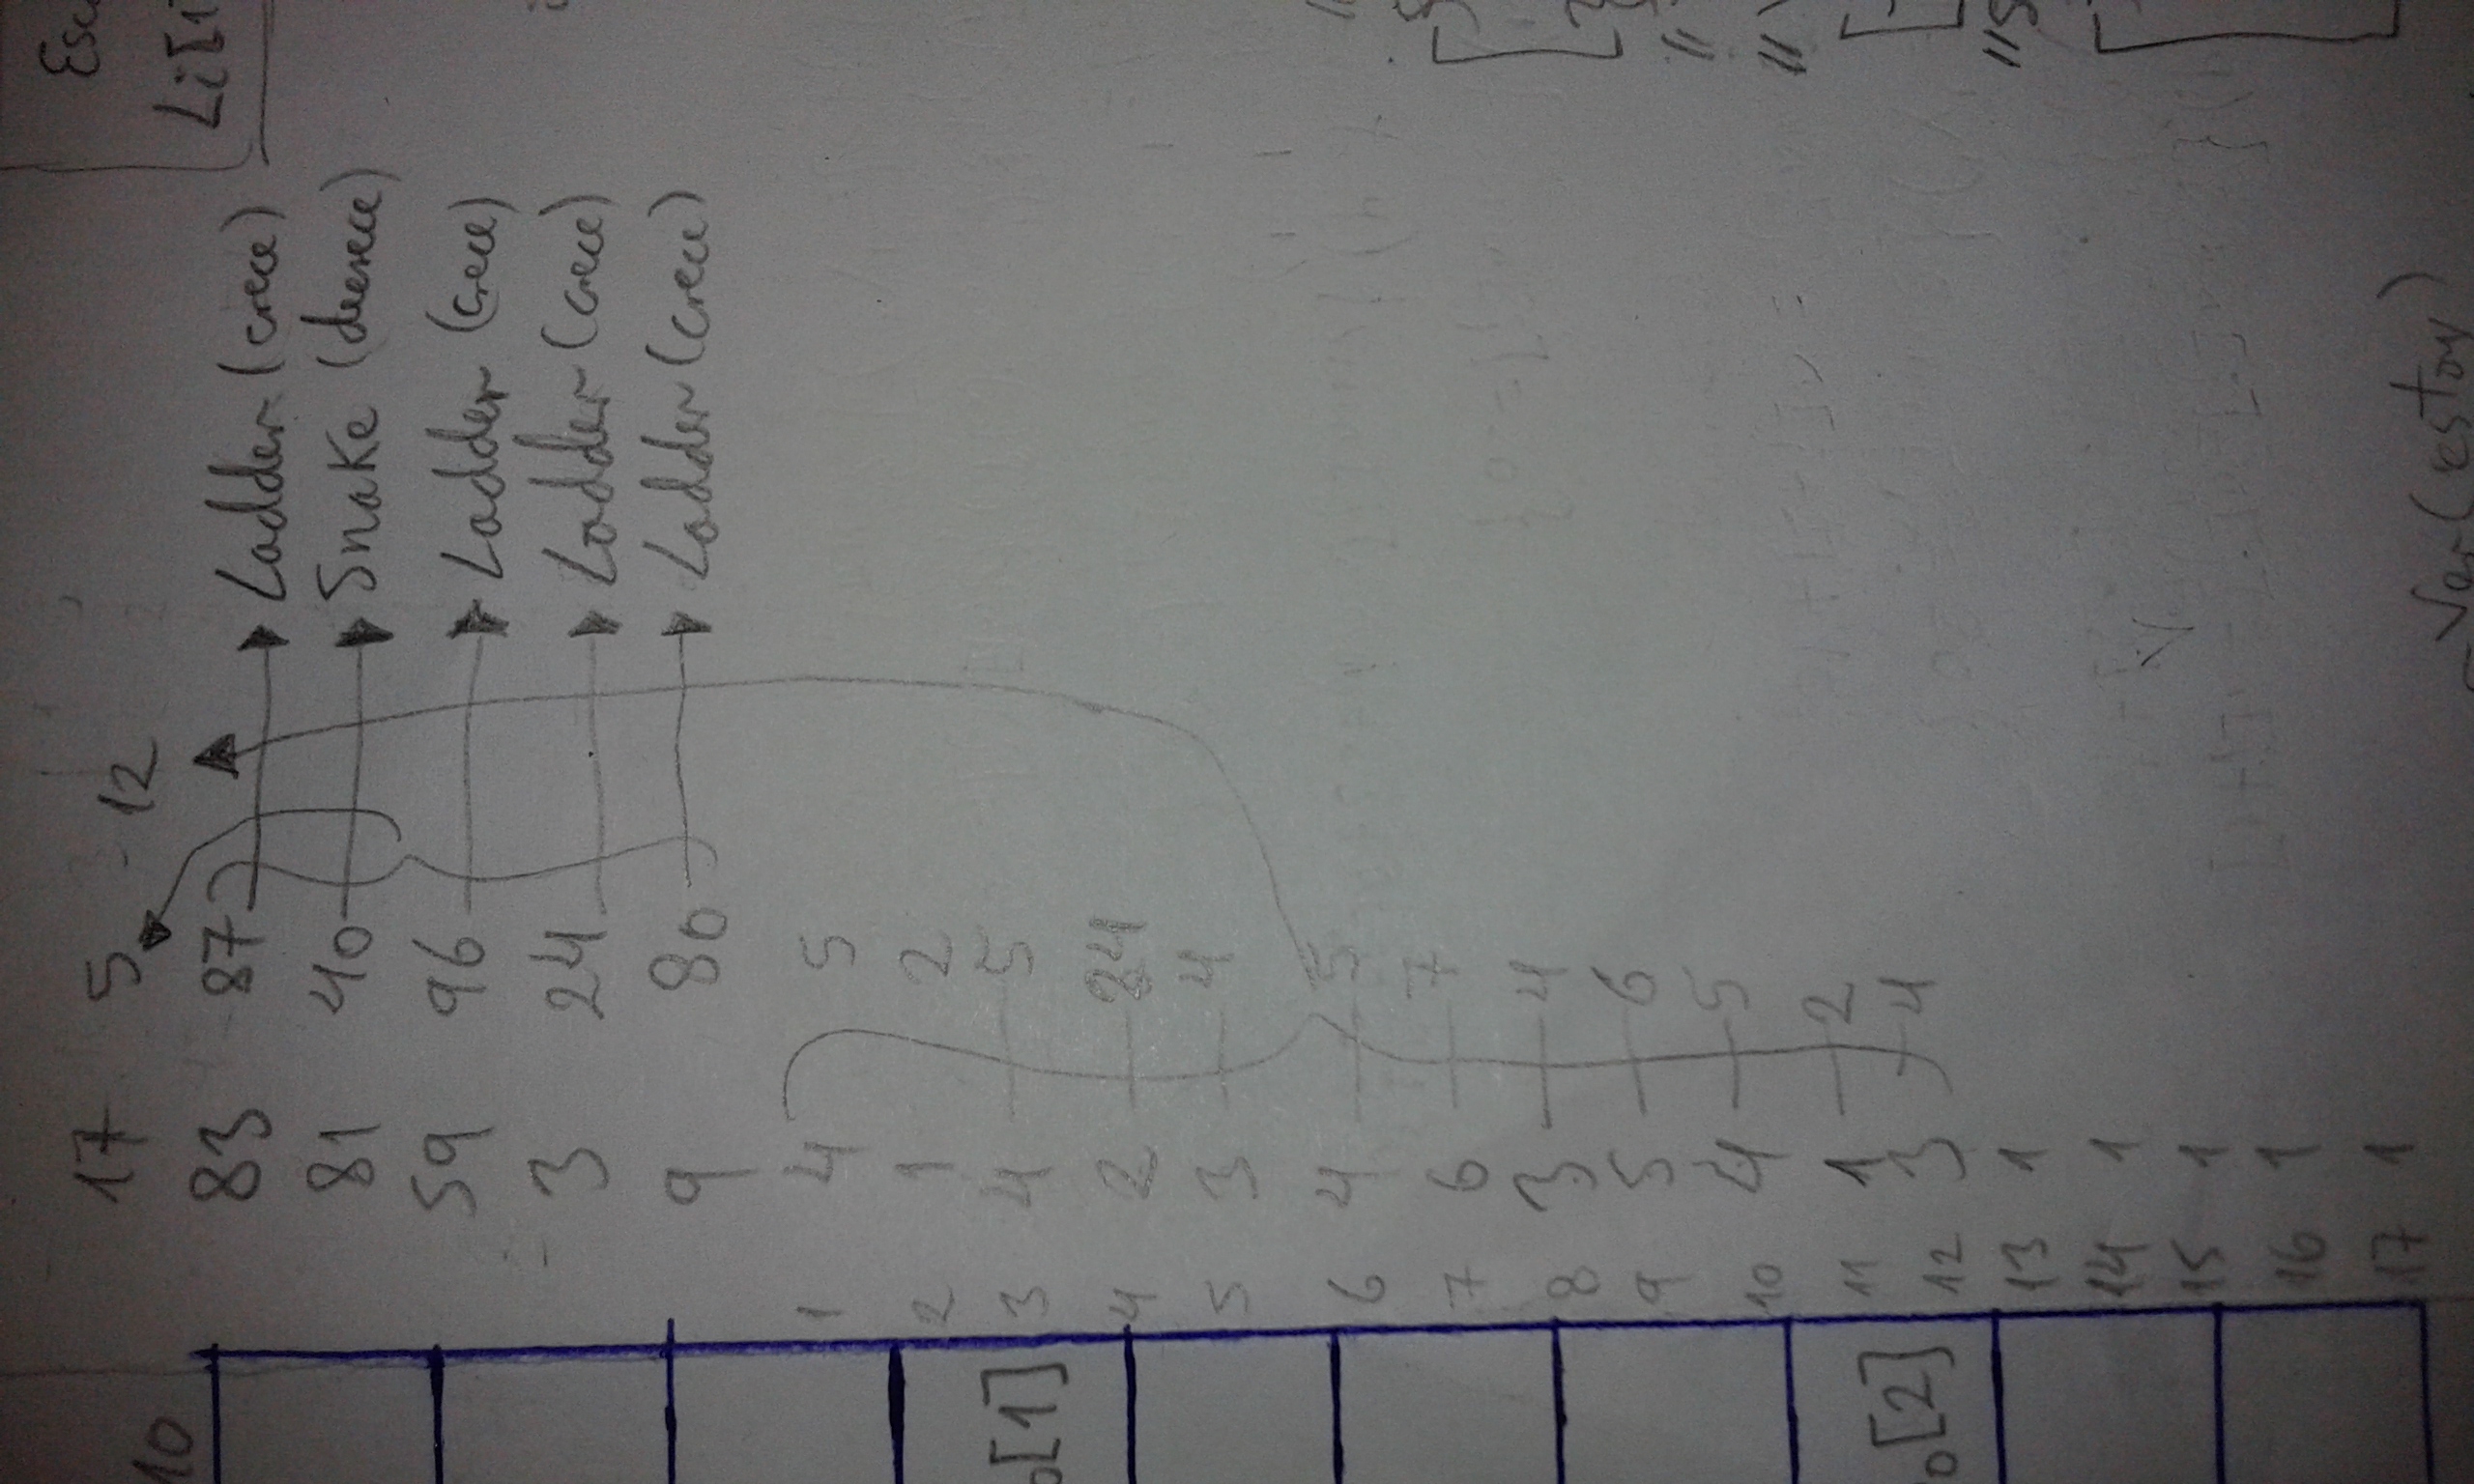 10
17 5 12
83 87 Ladder (crece)
81 40 Snake (decrece)
59 96 Ladder (crece)
3 24 Ladder (crece)
9 80 Ladder (crece)
1 4 5
2 1 2
[1]
3 4 5
4 2 24
5 3 4
6 4 5
7 6 7
8 3 4
9 5 6
10 4 5
11 1 2
[2]
12 3 4
13 1
14 1
15 1
16 1
17 1
Var (estoy)